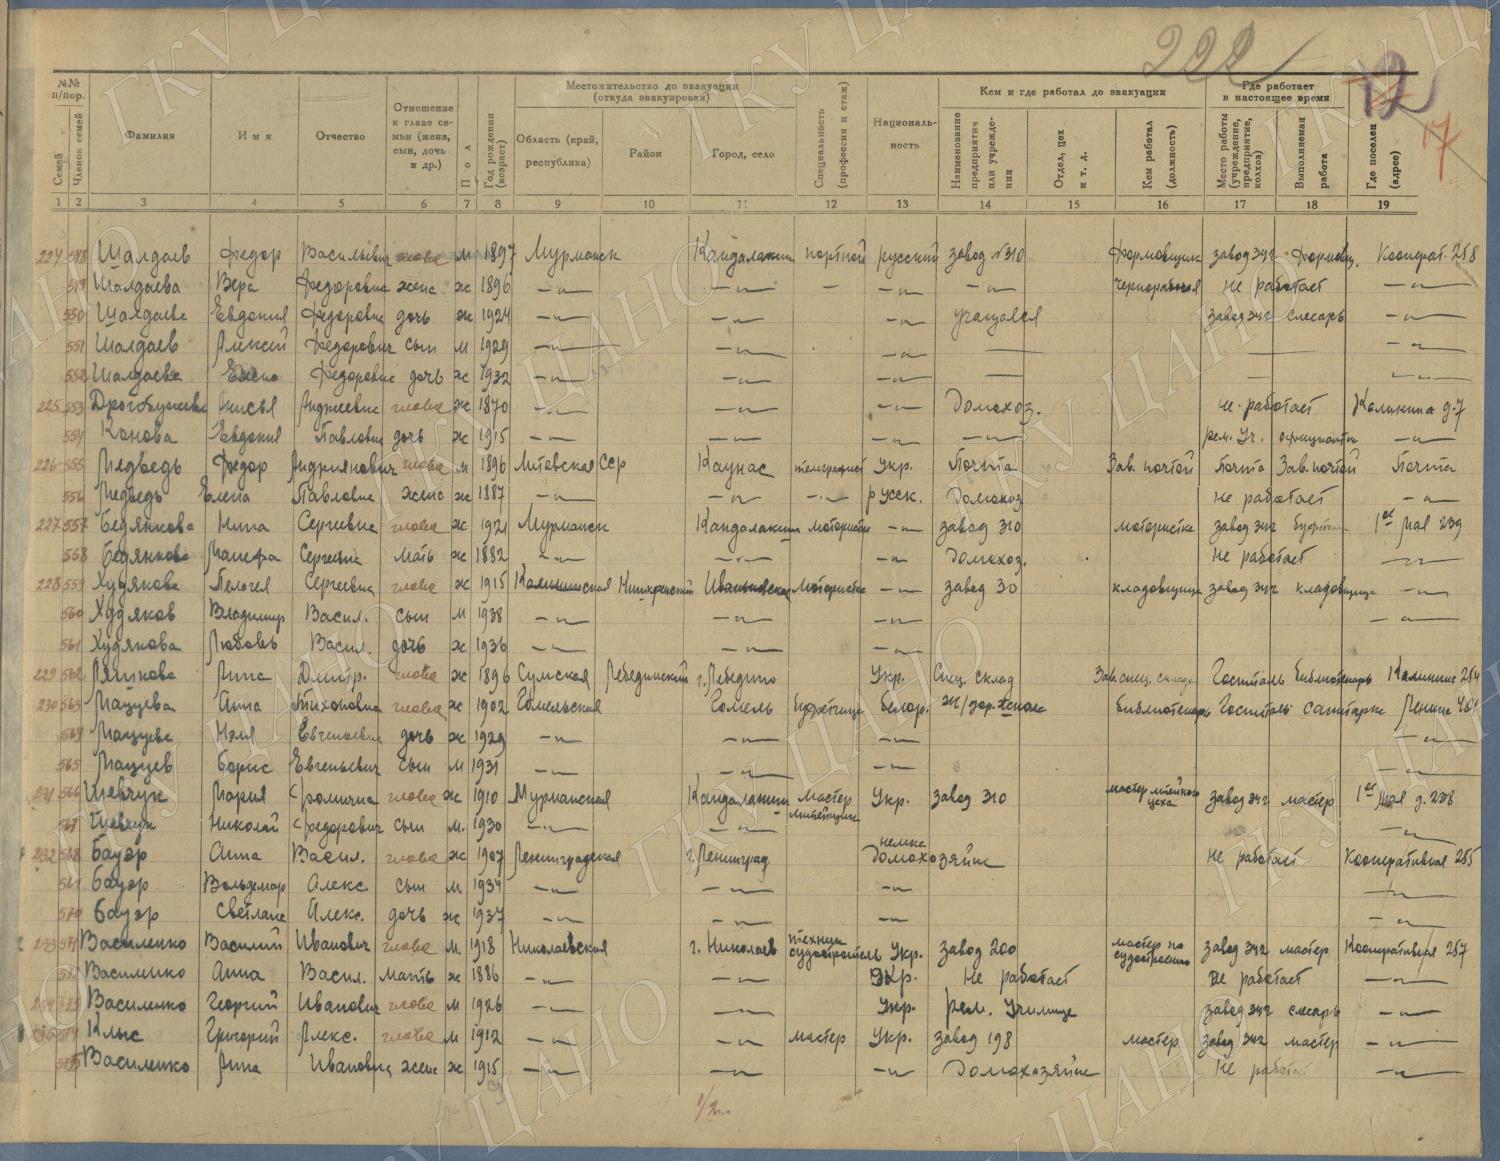 222
12
17
№№ п/пор.
Семей
Членов семей
Фамилия
Имя
Отчество
Отношение к главе семьи (жена, сын, дочь и др.)
Пол
Год рождения (возраст)
Местожительство до эвакуации (откуда эвакуирован)
Область (край, республика)
Район
Город, село
Специальность (профессия и стаж)
Националь-ность
Кем и где работал до эвакуации
Наименование предприятия или учреждения
Отдел, цех и т. д.
Кем работал (должность)
Где работает в настоящее время
Место работы (учреждение, предприятие, колхоз)
Выполняемая работа
Где поселен (адрес)
1 2 3 4 5 6 7 8 9 10 11 12 13 14 15 16 17 18 19
224 548 Шалдаев Федор Васильевич глова м 1897 Мурманск Кандалакши портной русский завод №310 Формовщик завод 342 Формовщ. Кооперат. 258
549 Шалдаева Вера Федоровна жена ж 1896 —"— —"— — —"— —"— чернорабочая не работает —"—
550 Шалдаева Евдокия Федоровна дочь ж 1924 —"— —"— —"— учащаяся завод 342 слесарь —"—
551 Шалдаев Алексей Федорович сын м 1929 —"— —"— —"— — — —"—
552 Шалдаева Федоровна дочь ж 1932 —"— —"— —"— — — —"—
225 553 Анисья Андреевна глова ж 1870 —"— —"— —"— Домохоз. не работает Калинина д. 7
554 Конова Евдокия Павловна дочь ж 1915 —"— —"— —"— —"— рем. Уч. официантка —"—
226 555 Медведь Федор Андриянович глова м 1896 Литовская ССР Каунас телеграфист Укр. Почта Зав. почтой Почта Зав. почтой Почта
556 Медведь Елена Павловна жена ж 1887 —"— —"— —"— русск. Домохоз не работает —"—
227 557 Бедянкова Нина Сергеевна глова ж 1921 Мурманск Кандалакши мотористка —"— завод 310 мотористка завод 342 1ое Мая 239
558 Бедянкова Сергеевна мать ж 1882 —"— —"— —"— Домохоз. не работает —"—
228 559 Худякова Пелагея Сергеевна глова ж 1915 Калининская Мотористка —"— завод 30 кладовщица завод 342 кладовщица —"—
560 Худяков Владимир Васил. сын м 1938 —"— —"— —"— —"—
561 Худякова Любовь Васил. дочь ж 1936 —"— —"— —"—
229 562 Дмитр. глова ж 1896 Сумская Лебединский г. Лебедино Укр. Спец. склад Зав. спец. склада Госпиталь библиотекарь Калинина 254
230 563 Мацуева Анна Тихоновна глова ж 1902 Гомельская Гомель буфетчица белор. ж/дор. школа библиотекарь Госпиталь санитарка Ленина 461
564 Мацуева Нэля Евгеньевна дочь ж 1929 —"— —"— —"—
565 Мацуев Борис Евгеньевич сын м 1931 —"— —"— —"—
231 566 Шевчук Мария глова ж 1910 Мурманская Кандалакши мастер Укр. завод 310 мастер литейного цеха завод 342 мастер 1ое Мая д. 238
567 Шевчук Николай Федорович сын м. 1930 —"— —"— —"—
232 568 Бауэр Анна Васил. глова ж 1907 Ленинградская г. Ленинград немка Домохозяйка не работает Кооперативная 255
569 Бауэр Вольдемар Алекс сын м. 1934 —"— —"— —"— —"—
570 Бауэр Светлана Алекс. дочь ж 1937 —"— —"— —"— —"—
233 571 Василенко Василий Иванович глова м. 1918 Николаевская г. Николаев техник судостроитель Укр. завод 200 мастер по судостроению завод 342 мастер Кооперативная 257
572 Василенко Анна Васил. мать ж 1886 —"— —"— Укр. не работает не работает —"—
234 573 Василенко Георгий Иванович глова м 1926 —"— —"— Укр. рем. Училище завод 342 слесарь —"—
235 574 Клыс Григорий Алекс. глова м 1912 —"— —"— мастер Укр. завод 198 мастер завод 342 мастер —"—
575 Василенко Иванович жена ж 1915 —"— —"— —"— Домохозяйка не работает —"—
ГКУ ЦАНО